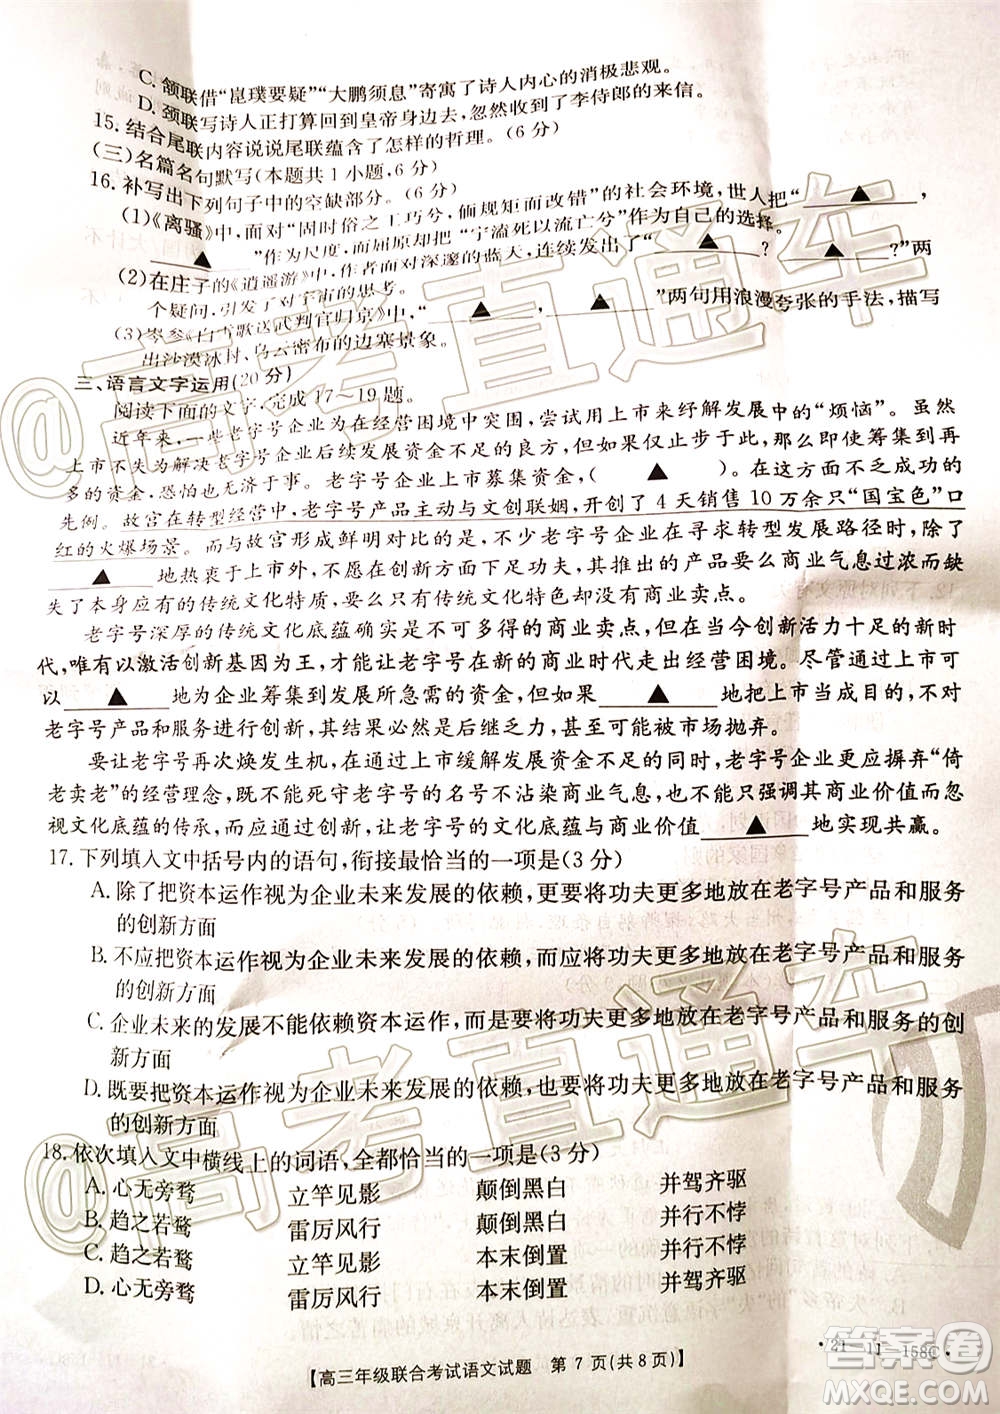 C. 颔联借“崑璞要疑”“大鹏须息”寄寓了诗人内心的消极悲观。
D. 颈联写诗人正打算回到皇帝身边去，结果却收到了李侍郎的来信。
15. 结合尾联内容说说尾联蕴含了怎样的哲理。(6分)
(三)名篇名句默写(本题共1小题，6分)
16. 补写出下列句子中的空缺部分。(6分)
(1)《离骚》中，面对“固时俗之工巧兮，偭规矩而改错”的社会环境，世人把“▲，
▲”作为尺度，而屈原却以“宁溘死以流亡兮”作为自己的选择。
(2)在庄子的《逍遥游》中，作者面对深邃的蓝天，连续发出了“▲？▲？”两
个疑问，引发了对宇宙的思考。
(3)岑参《白雪歌送武判官归京》中，“▲，▲”两句用浪漫夸张的手法，描写
出沙漠冰封、乌云密布的边塞景象。
三、语言文字运用(20分)
阅读下面的文字，完成17～19题。
近年来，一些老字号企业为在经营困境中突围，尝试用上市来纾解发展中的“烦恼”。虽然
上市不失为解决老字号企业后续发展资金不足的良方，但如果仅止步于此，那么即使筹集到再
多的资金，恐怕也无济于事。老字号企业上市募集资金，(▲)。这方面不乏成功
先例。故宫在转型经营中，老字号产品主动与文创联姻，开创了4天销售10万余只“国宝色”口
红的火爆场景。而与故宫形成鲜明对比的是，不少老字号企业在寻求转型发展路径时，除了
▲地热衷于上市外，却在创新方面下足功夫，其推出的产品要么商业气息过浓而缺
失了本身应有的传统文化特质，要么只有传统文化特色却没有商业卖点。
老字号深厚的传统文化底蕴确实是不可多得的商业卖点，但在当今创新活力十足的新时
代，唯有以激活创新基因为王，才能让老字号在新的商业时代走出经营困境。尽管通过上市可
以▲地为企业筹集到发展所急需的资金，但如果▲地把上市当成目的，不对
老字号产品和服务进行创新，其结果必然是后继乏力，甚至可能被市场抛弃。
要让老字号再次焕发生机，在通过上市缓解发展资金不足难题的同时，老字号企业更应摒弃“倚
老卖老”的经营理念，既不能死守老字号的名号不沾染商业气息，也不能只强调其商业价值而忽
视文化底蕴的传承，而应通过创新，让老字号的文化底蕴与商业价值▲地实现共赢。
17. 下列填入文中括号内的语句，衔接最恰当的一项是(3分)
A. 除了把资本运作视为企业未来发展的依赖，更要将功夫更多地放在老字号产品和服务
的创新方面
B. 不应把资本运作视为企业未来发展的依赖，而应将功夫更多地放在老字号产品和服务
的创新方面
C. 企业未来的发展不能依赖资本运作，而是要将功夫更多地放在老字号产品和服务的创
新方面
D. 既要把资本运作视为企业未来发展的依赖，也要将功夫更多地放在老字号产品和服务
的创新方面
18. 依次填入文中横线上的词语，全都恰当的一项是(3分)
A. 心无旁骛 立竿见影 颠倒黑白 并驾齐驱
B. 趋之若鹜 雷厉风行 颠倒黑白 并行不悖
C. 趋之若鹜 立竿见影 本末倒置 并行不悖
D. 心无旁骛 雷厉风行 本末倒置 并驾齐驱
【高三年级联合考试语文试题 第7页(共8页)】
·21－11－158C·
@高考直通车
@高考直通车